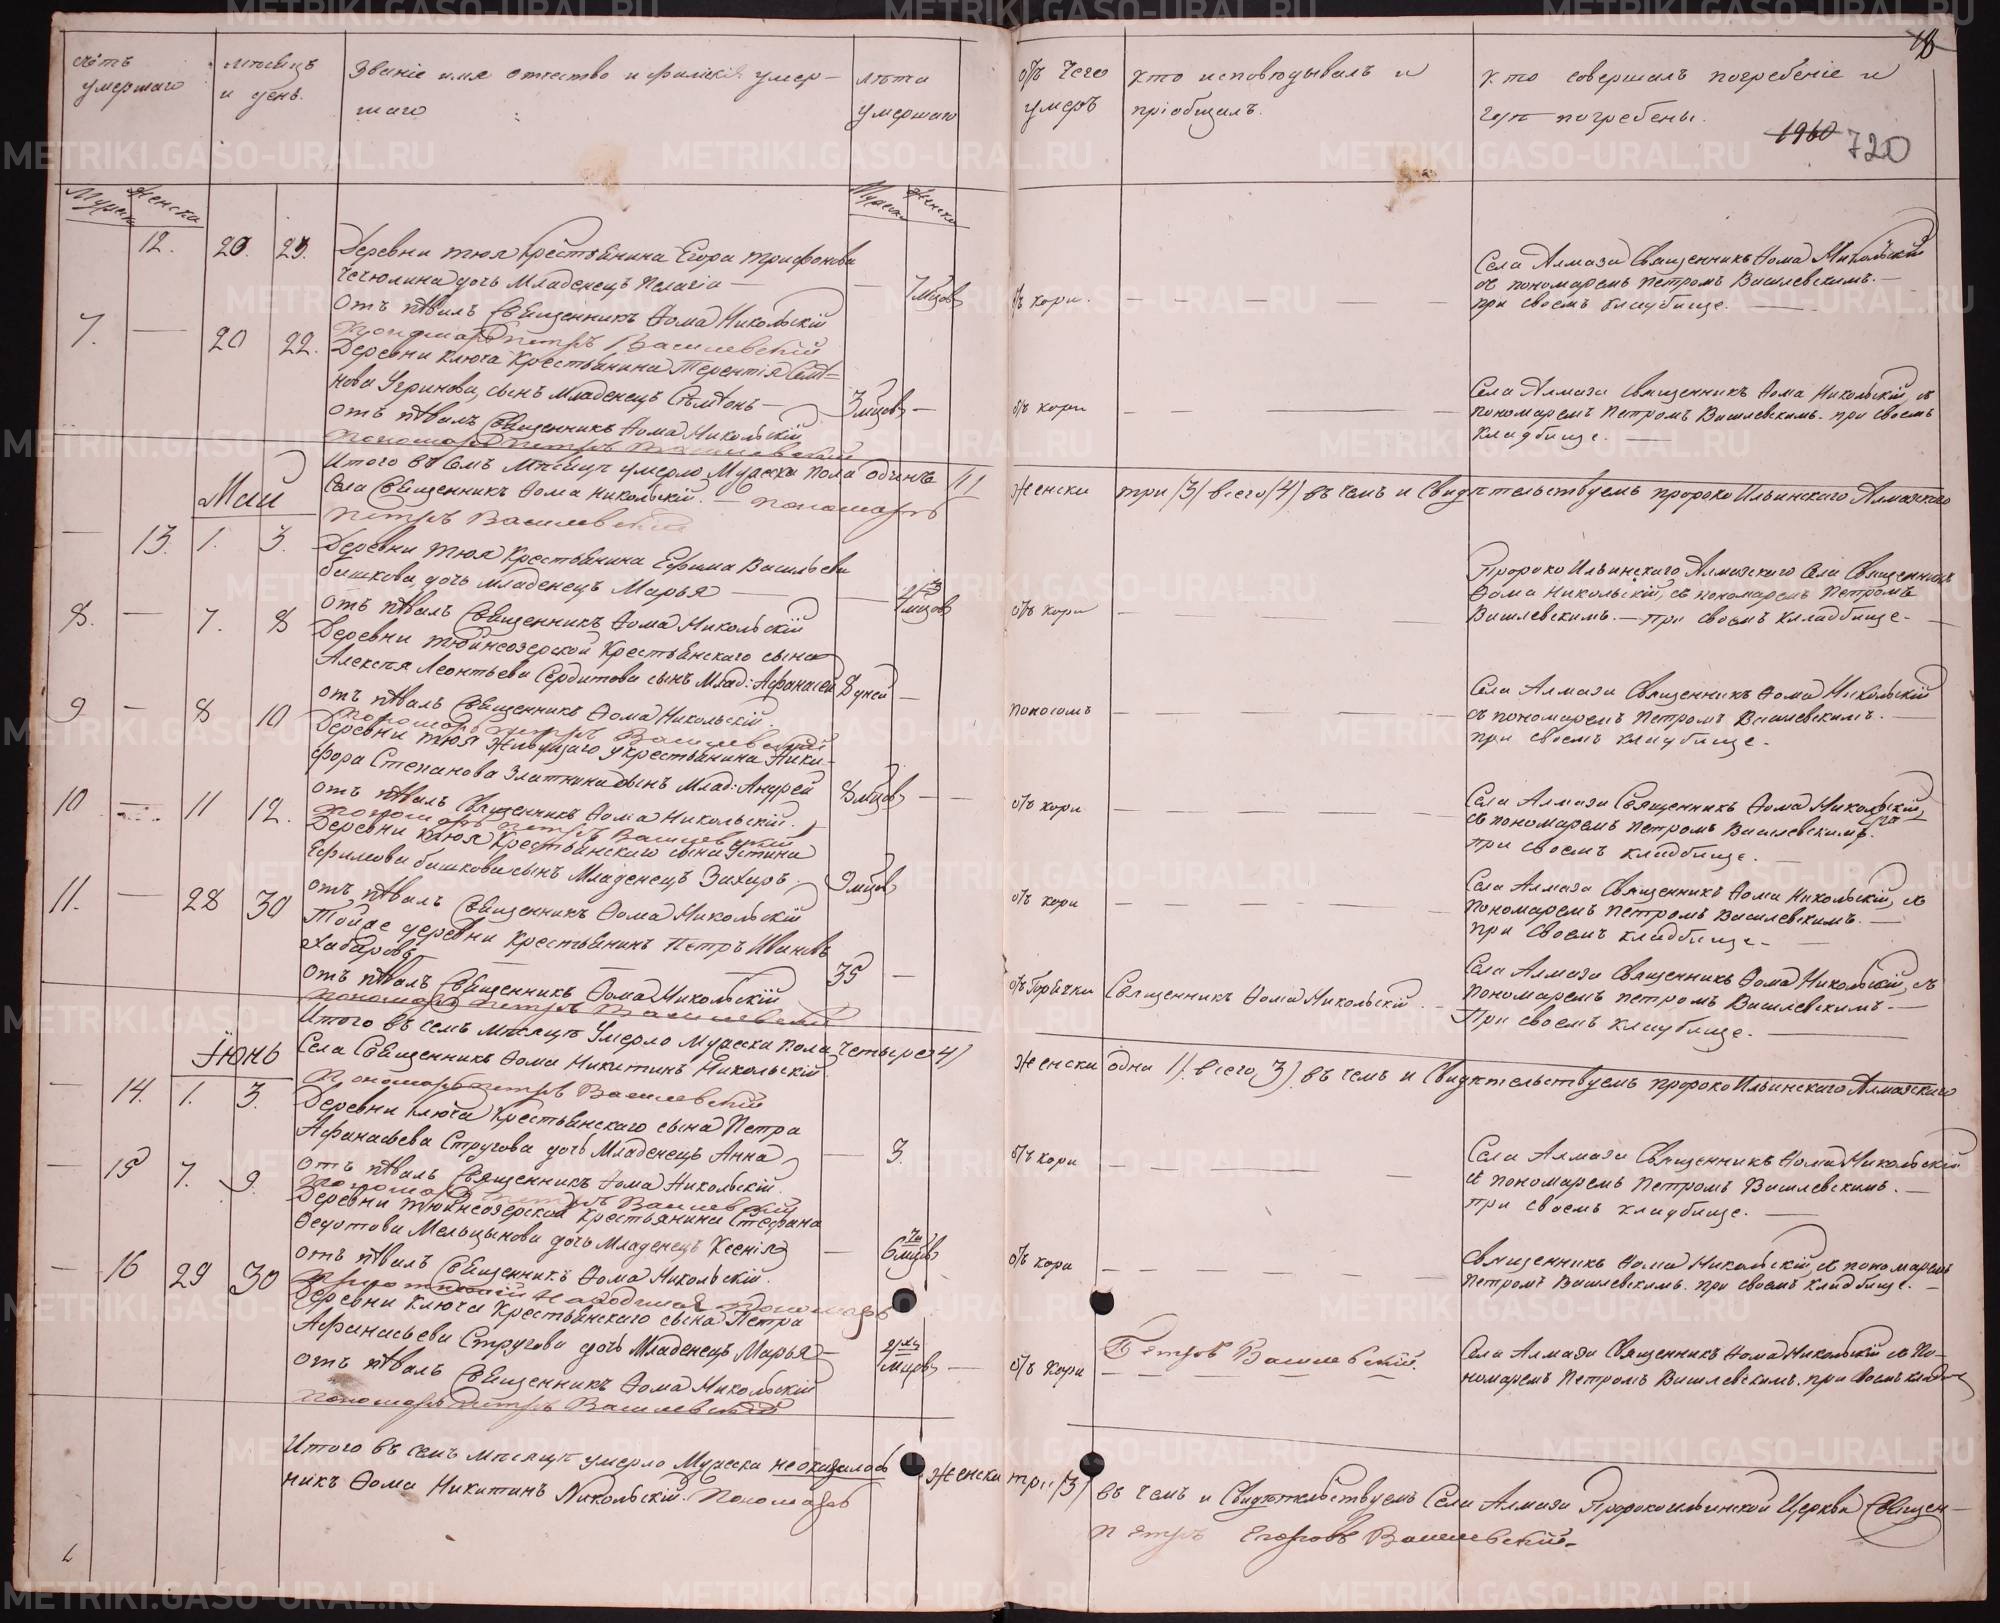 счётъ умершаго
Мѣсяцъ и день.
Званіе имя отчество и фамилія умер-
шаго
лѣта умершаго
отъ чего умеръ
кто исповѣдывалъ и пріобщалъ.
кто совершалъ погребеніе и
гдѣ погребены.
18
1960 720
Мужск Женска
Мужск Женска
12. 20. 23. Деревни тюя Крестьянина Егора Трифонова
дочь Младенецъ Пелагія —
отъ кори.
Села Алмаза Священникъ Ѳома Никольскій
съ пономаремъ Петромъ Василевскимъ. —
при своемъ кладбище. —
отъ пѣвалъ Священникъ Ѳома Никольскій
Пономарь Петръ Василевскій
7. — 20 22. Деревни Ключа Крестьянина Терентія Семё-
нова Угринова сынъ младенецъ Семёонъ —
3 мцов —
отъ кори
Села Алмаза Священникъ Ѳома Никольскій, съ
пономаремъ Петромъ Василевскимъ. при своемъ
кладбище. —
отъ пѣвалъ Священникъ Ѳома Никольскій
Пономарь Петръ Василевскій
Итого въ семъ мѣсяцѣ умерло Мужска пола одинъ /1/
женски три /3/ всего /4/ въ чемъ и Свидѣтельствуемъ пророко Ильинскаго Алмазскаго
Села Священникъ Ѳома Никольскій. — Пономарь
Петръ Василевскій
Май
— 13. 1. 3. Деревни тюя Крестьянина Ефима Васильева
бишкова, дочь младенецъ Марья —
отъ кори
Пророко Ильинскаго Алмазскаго Села Священникъ
Ѳома Никольскій, съ пономаремъ Петромъ
Василевскимъ. — при своемъ кладбище. —
отъ пѣвалъ Священникъ Ѳома Никольскій
8. — 7. 8 Деревни тюйнеозерской Крестьянскаго сына
Алексѣя Леонтьева Сердитова сынъ Млад: Афанасей
8 дней —
поносомъ
Села Алмаза Священникъ Ѳома Никольскій
съ пономаремъ Петромъ Василевскимъ. —
при своемъ кладбище. —
отъ пѣвалъ Священникъ Ѳома Никольскій.
Пономарь Петръ Василевскій
9 — 8 10 Деревни тюя Живущаго у крестьянина Ники-
фора Степанова Златкина сынъ Млад: Андрей
8 мцов —
отъ кори
Села Алмаза Священникъ Ѳома Никольскій,
съ пономаремъ Петромъ Василевскимъ.
при своемъ кладбище. —
отъ пѣвалъ Священникъ Ѳома Никольскій.
Пономарь Петръ Василевскій
10 — 11 12. Деревни тюя Крестьянскаго сына Устина
Ефимова бишкова сынъ Младенецъ Захаръ,
9 мцов
отъ кори
Села Алмаза Священникъ Ѳома Никольскій, съ
пономаремъ Петромъ Василевскимъ. —
при своемъ кладбище. —
отъ пѣвалъ Священникъ Ѳома Никольскій
11. — 28 30 Тойже деревни Крестьянинъ Петръ Ивановъ
Хабаровъ —
35 —
отъ Горячки
Священникъ Ѳома Никольскій.
Села Алмаза Священникъ Ѳома Никольскій, съ
пономаремъ Петромъ Василевскимъ. —
При своемъ кладбище. —
отъ пѣвалъ Священникъ Ѳома Никольскій
Пономарь Петръ Василевскій
Итого въ семъ мѣсяцѣ Умерло Мужска пола четыре /4/
женски одна /1/. всего, 3/. въ чемъ и Свидѣтельствуемъ пророко Ильинскаго Алмазскаго
Села Священникъ Ѳома Никитинъ Никольскій
Пономарь Петръ Василевскій
Іюнь
— 14. 1. 3. Деревни Ключа Крестьянскаго сына Петра
Афанасьева Стругова дочь Младенецъ Анна,
— 3.
отъ кори
Села Алмаза Священникъ Ѳома Никольскій
съ пономаремъ Петромъ Василевскимъ. —
при своемъ кладбище. —
отъ пѣвалъ Священникъ Ѳома Никольскій.
Пономарь Петръ Василевскій
— 15 7. 9. Деревни тюйнеозерской Крестьянина Стефана
Ѳедотова Мельцынова дочь Младенецъ Ксенія
отъ кори
Священникъ Ѳома Никольскій, съ пономаремъ
Петромъ Василевскимъ. при своемъ кладбище. —
отъ пѣвалъ Священникъ Ѳома Никольскій.
при отпѣтіи находился Пономарь
Петръ Василевскій.
— 16 29 30 Деревни Ключа Крестьянскаго сына Петра
Афанасьева Стругова дочь Младенецъ Марья —
отъ Кори
Села Алмаза Священникъ Ѳома Никольскій съ По-
номаремъ Петромъ Василевскимъ. при своемъ кладби
отъ пѣвалъ Священникъ Ѳома Никольскій
Пономарь Петръ Василевскій
Итого въ семъ мѣсяцѣ умерло Мужска неоказалось
женска три, /3/ въ чемъ и Свидѣтельствуемъ Села Алмаза Пророкоильинской Церкви Священ-
никъ Ѳома Никитинъ Никольскій. Пономарь
Петръ Егоровъ Василевскій.
METRIKI.GASO-URAL.RU